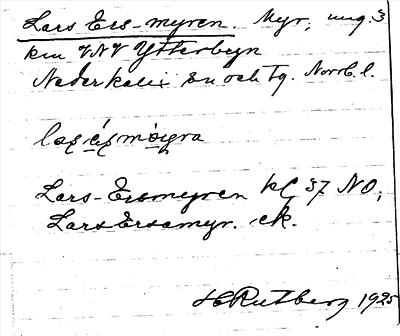 Lars Ers-myren. Myr, ung. 3
km VNV Ytterbyn
Nederkalix sn och tg. Norrb. l.
Lars-Ersmyren kbl 37 NO,
Lars Ersamyr. ek.
H Rutberg 1925